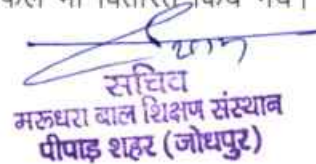 सचिव
मरुधरा बाल शिक्षण संस्थान
पीपाड़ शहर (जोधपुर)